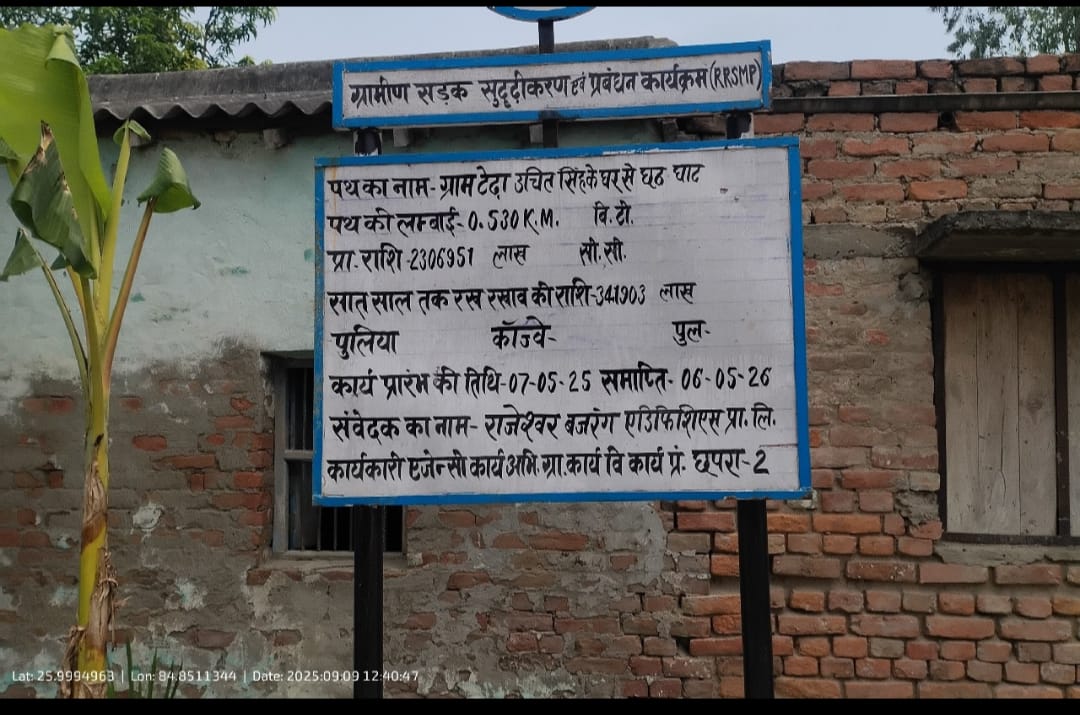 ग्रामीण सड़क सुदृढ़ीकरण एवं प्रबंधन कार्यक्रम (RRSMP)
पथ का नाम- ग्राम टेढ़ा उचित सिंह के घर से छठ घाट
पथ की लम्बाई- 0.530 K.M. बि.टी.
प्रा. राशि -2306951 लाख सी.सी.
सात साल तक रख रखाव की राशि-341903 लाख
पुलिया कॉज्वे- पुल-
कार्य प्रारंभ की तिथि-07-05-25 समाप्ति- 06-05-26
संवेदक का नाम- राजेश्वर बजरंग एडिफिशिएस प्रा. लि.
कार्यकारी एजेन्सी कार्य अभि ग्रा. कार्य वि कार्य प्रं. छपरा-2
Lat: 25.9994963 | Lon: 84.8511344 | Date: 2025:09:09 12:40:47